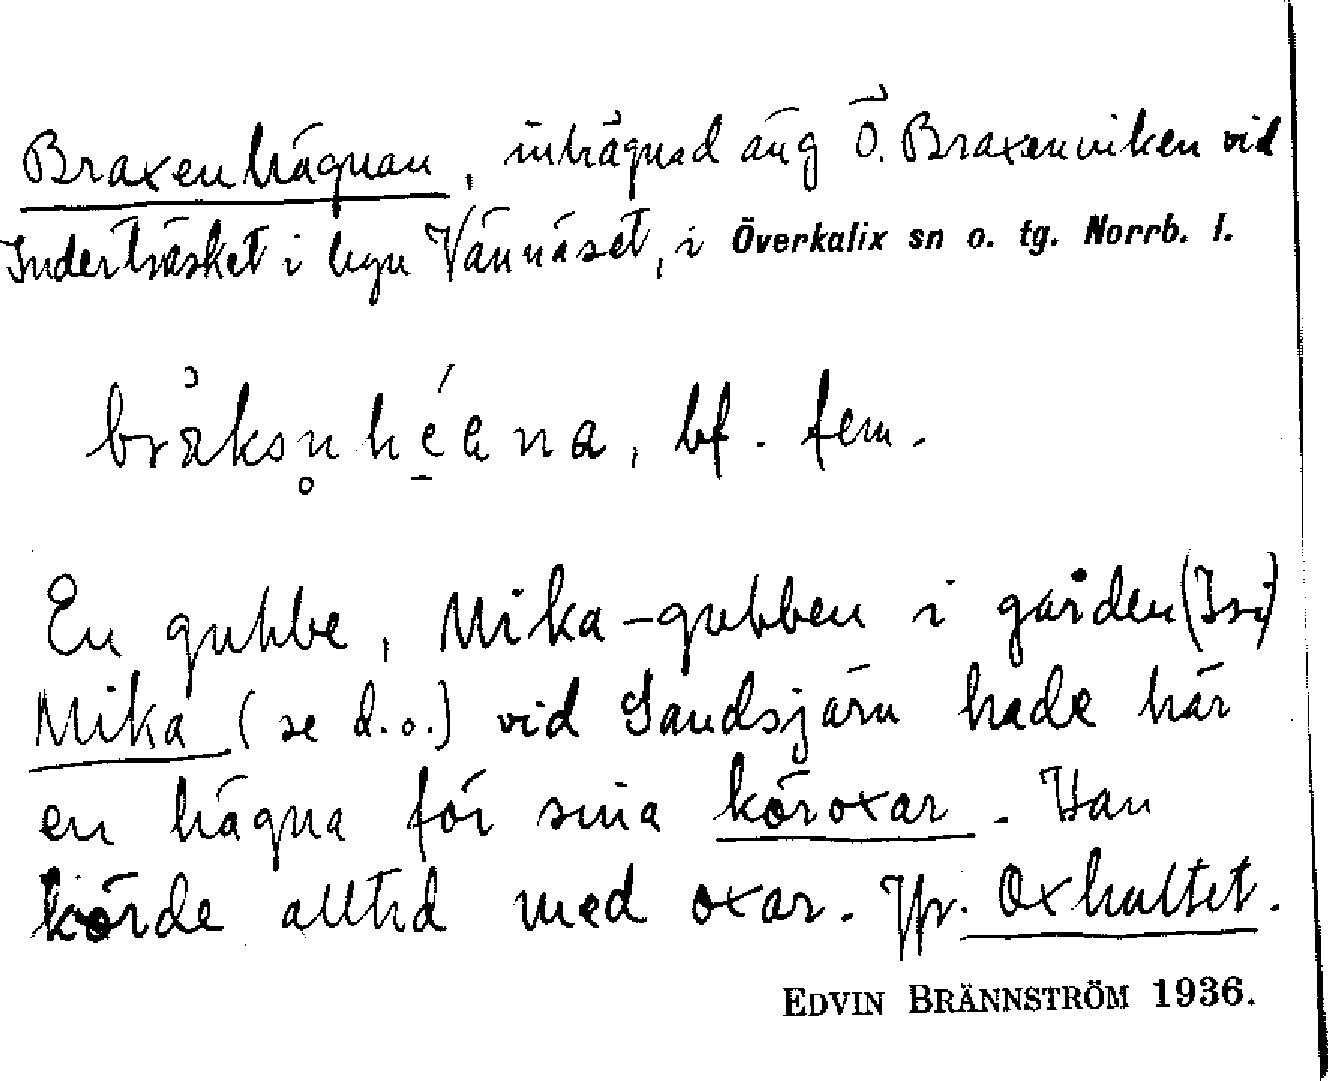 Braxenhägnan, inhägnad äng Ö. Braxenviken vid
Inderträsket i byn Vännäset, i Överkalix sn o. tg. Norrb. l.
bf. fem.
En gubbe, Mika-gubben i gården
Mika (se d.o.) vid Sandsjärn hade här
en hägna för sina köroxar. Han
körde alltid med oxar. Jfr. Oxhultet.
EDVIN BRÄNNSTRÖM 1936.